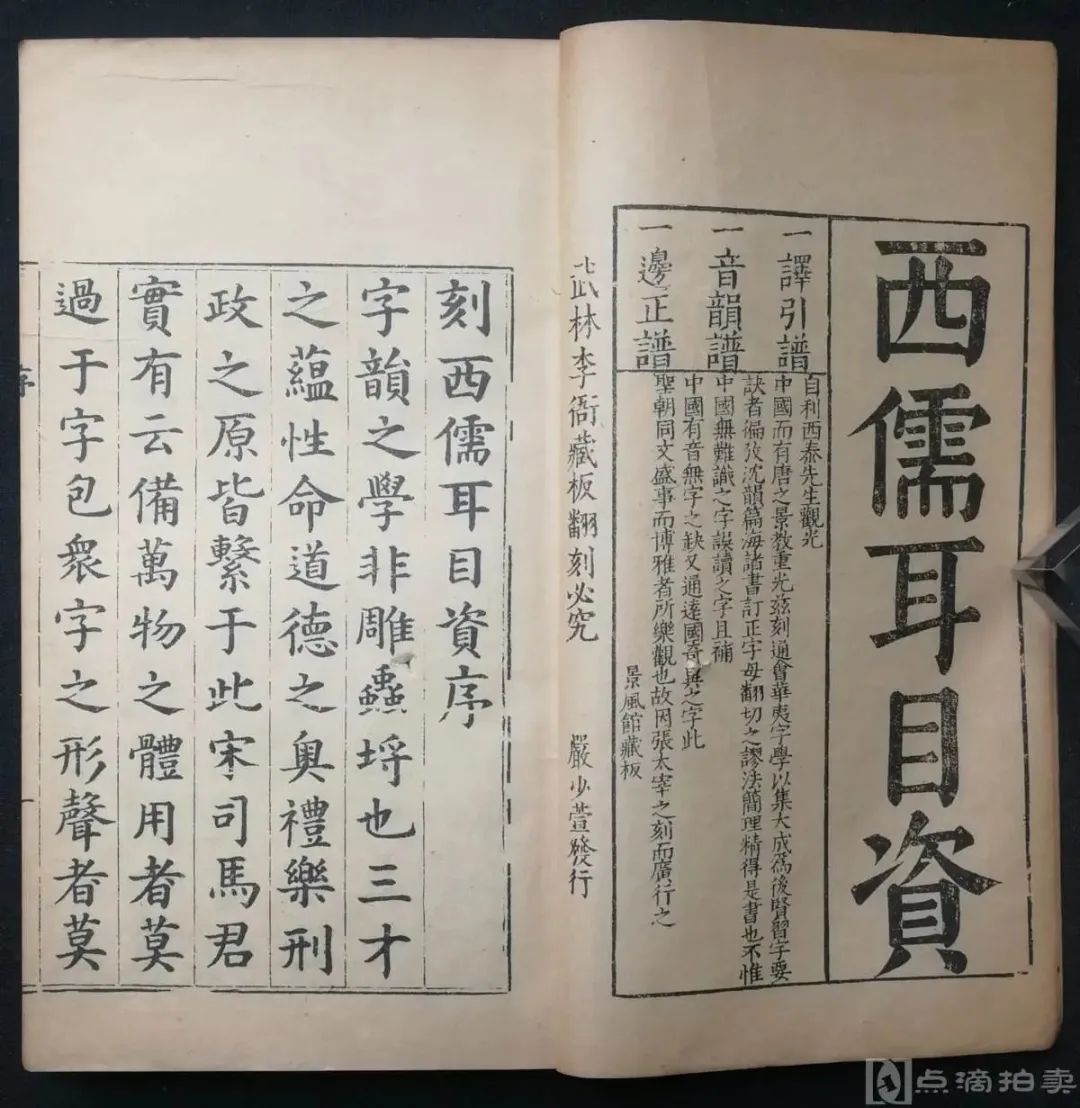 西儒耳目資
一譯引譜
一音韻譜
一邊正譜
自利西泰先生觀光
中國而有唐之景教重光茲刻通會華夷字學以集大成爲後賢習字要
訣者徧攷沈韻篇海諸書訂正字母翻切之謬法簡理精得是書也不惟
中國無難識之字誤讀之字且補
中國有音無字之缺又通達國奇異之字此
聖朝同文盛事而博雅者所樂觀也故因張太宰之刻而廣行之
景風館藏板
武林李衙藏板翻刻必究 嚴少萱發行
刻西儒耳目資序
字韻之學非雕蟲埒也三才
之蘊性命道德之奥禮樂刑
政之原皆繫于此宋司馬君
實有云備萬物之體用者莫
過于字包衆字之形聲者莫
序
一
点滴拍卖